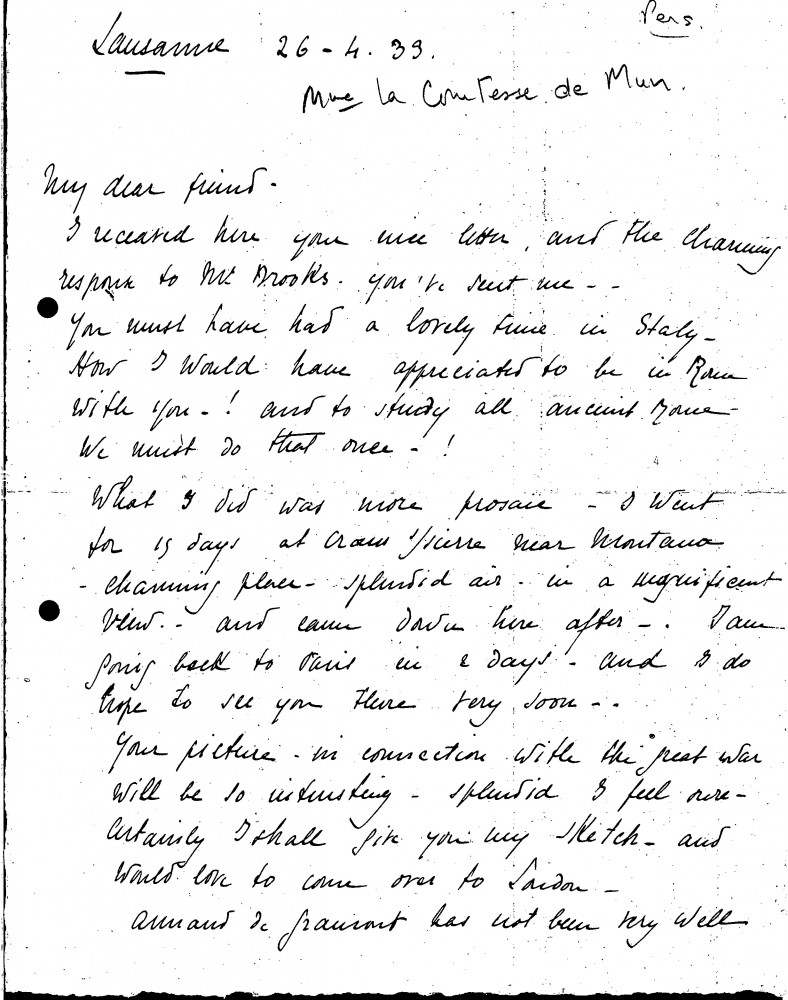 Pers.
Lausanne 26-4.39.
Mme la Comtesse de Mun.
My dear friend-
I received here your nice letter, and the charming
response to Mr Brooks. you've sent me--
You must have had a lovely time in Italy-
How I would have appreciated to be in Rome
with you-! and to study all ancient Rome-
We must do that once-!
What I did was more prosaic - I went
for 15 days at Crans s/Sierre near Montana
- charming place- splendid air- in a magnificent
view.- and came down here after-. I am
going back to Paris in 2 days- and I do
hope to see you there very soon--
Your picture- in connection with the great war
will be so interesting- splendid I feel sure-
Certainly I shall give you my sketch- and
would love to come over to London-
Armand de Gramont has not been very well